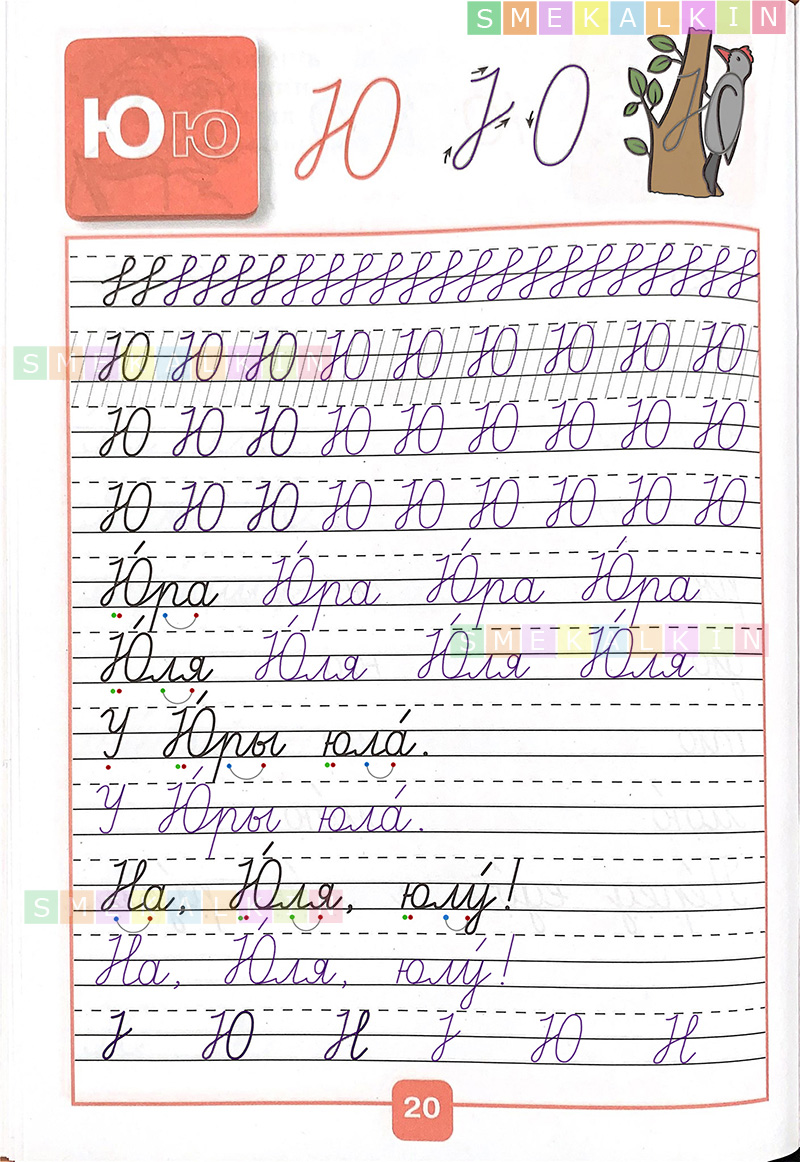 SMEKALKIN
Юю Ю
Ю Ю Ю Ю Ю Ю Ю Ю Ю
SMEKALKIN
Ю Ю Ю Ю Ю Ю Ю Ю Ю
Ю Ю Ю Ю Ю Ю Ю Ю Ю
Ю́ра Ю́ра Ю́ра Ю́ра
Ю́ля Ю́ля Ю́ля Ю́ля
SMEKALKIN
У Ю́ры юла́.
У Ю́ры юла́.
На, Ю́ля, юлу́!
SMEKALKIN
На, Ю́ля, юлу́!
Ю Н Ю Н
20